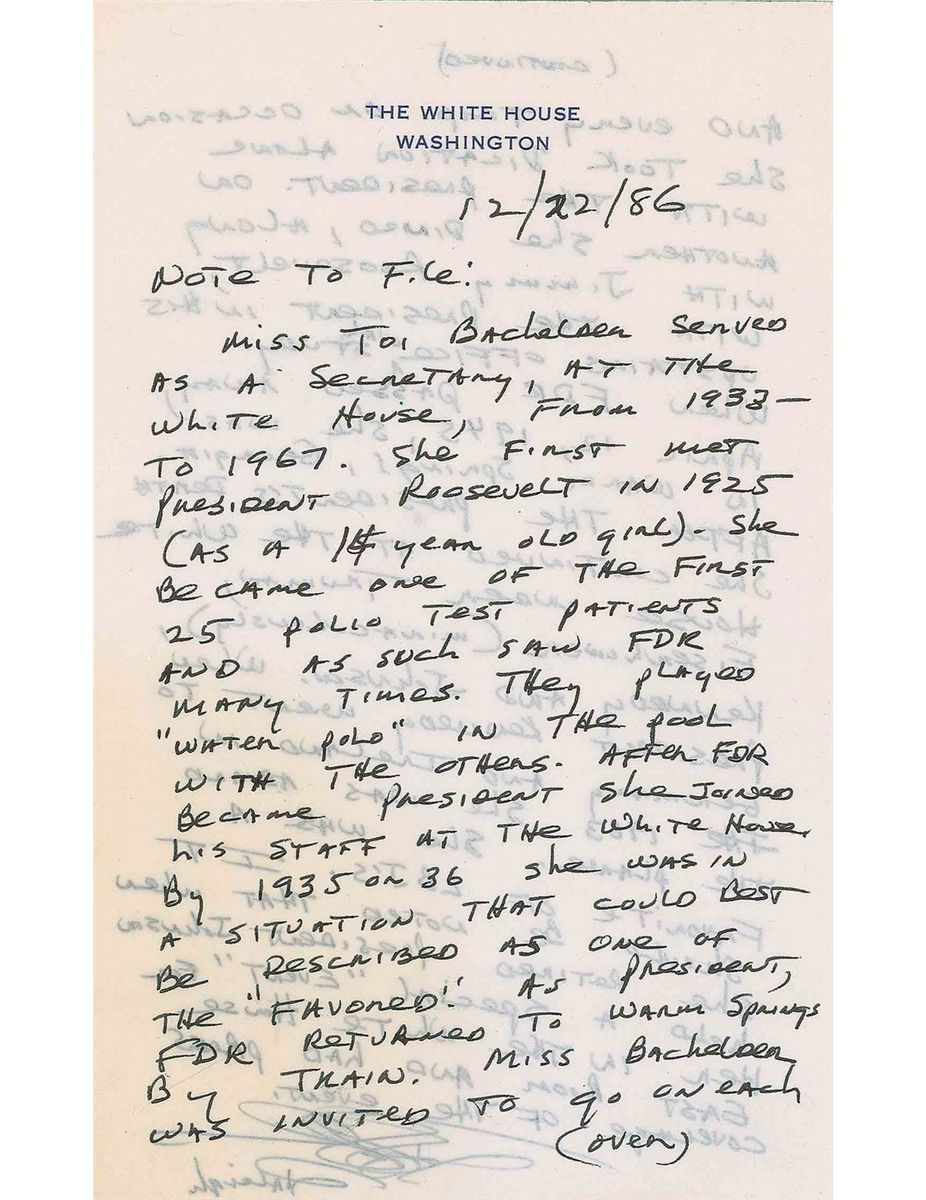 THE WHITE HOUSE
WASHINGTON
12/22/86
Note To File:
Miss Toi Bachelder served
as a secretary, at the
White House, from 1933 -
to 1967. She first met
President Roosevelt in 1925
(as a year old girl). She
became one of the first
25 polio test patients
and as such saw FDR
many times. They played
"water polo" in the pool
with the others. After FDR
became President she joined
his staff at the White House.
By 1935 or 36 she was in
a situation that could best
be described as one of
the "favored." As President,
FDR returned to Warm Springs
by train. Miss Bachelder
was invited to go on each
(over)